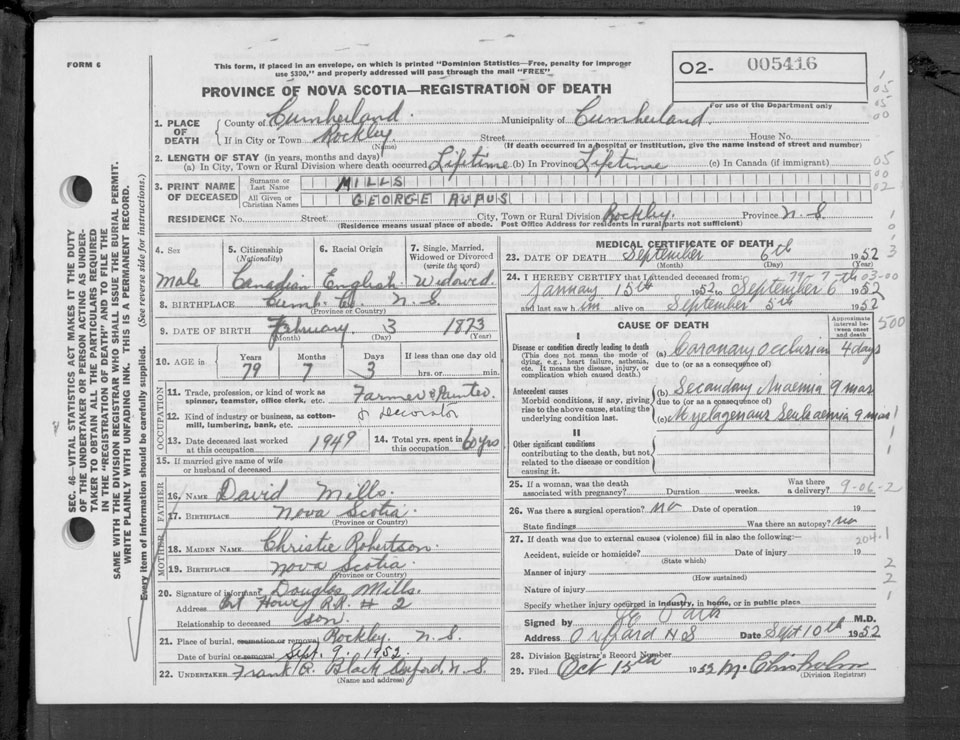 FORM 6
This form, if placed in an envelope, on which is printed "Dominion Statistics—Free, penalty for improper
use $300," and properly addressed will pass through the mail "FREE"
PROVINCE OF NOVA SCOTIA—REGISTRATION OF DEATH
O2- 005416
For use of the Department only
1. PLACE OF DEATH
County of Cumberland Municipality of Cumberland
If in City or Town Rockley Street House No.
(Name) (If death occurred in a hospital or institution, give the name instead of street and number)
2. LENGTH OF STAY (in years, months and days)
(a) In City, Town or Rural Division where death occurred Lifetime (b) In Province Lifetime (c) In Canada (if immigrant)
3. PRINT NAME OF DECEASED
Surname or Last Name MILLS
All Given or Christian Names GEORGE
RESIDENCE No. Street City, Town or Rural Division Rockley. Province N.S.
(Residence means usual place of abode. Post Office Address for residents in rural parts not sufficient)
4. Sex Male
5. Citizenship (Nationality) Canadian
6. Racial Origin English
7. Single, Married, Widowed or Divorced (write the word) Widowed.
8. BIRTHPLACE Cumb. Co. N.S.
(Province or Country)
9. DATE OF BIRTH February 3 1873
(Month) (Day) (Year)
10. AGE in Years 79 Months 7 Days 3 If less than one day old
hrs. or min.
OCCUPATION
11. Trade, profession, or kind of work as spinner, teamster, office clerk, etc. Farmer & Painter
12. Kind of industry or business, as cotton-mill, lumbering, bank, etc. & Decorator
13. Date deceased last worked at this occupation 1949
14. Total yrs. spent in this occupation 60 yrs
15. If married give name of wife or husband of deceased
FATHER
16. NAME David Mills.
17. BIRTHPLACE Nova Scotia.
(Province or Country)
MOTHER
18. MAIDEN NAME Christie Robertson.
19. BIRTHPLACE Nova Scotia.
(Province or Country)
20. Signature of informant Douglas Mills.
Address Howe RR # 2
Relationship to deceased son.
21. Place of burial, cremation or removal Rockley. N.S.
Date of burial or removal Sept. 9. 1952.
22. UNDERTAKER Frank R. Black Oxford, N.S.
(Name and address)
MEDICAL CERTIFICATE OF DEATH
23. DATE OF DEATH September 6th 1952
(Month) (Day) (Year)
24. I HEREBY CERTIFY that I attended deceased from:
79-7-
03-00
January 15th 1952 to September 6th 1952
and last saw him alive on September 5th 1952
CAUSE OF DEATH
Approximate interval between onset and death
I
Disease or condition directly leading to death
(This does not mean the mode of dying, e.g., heart failure, asthenia, etc. It means the disease, injury, or complication which caused death.)
(a) Coronary Occlusion 4 days
due to (or as a consequence of)
Antecedent causes
Morbid conditions, if any, giving rise to the above cause, stating the underlying condition last.
(b) Secondary Anaemia 9 mos
due to (or as a consequence of)
(c) Myelogenous Leukaemia 9 mos
II
Other significant conditions
contributing to the death, but not related to the disease or condition causing it.
25. If a woman, was the death associated with pregnancy? Duration weeks. Was there a delivery?
9-06-2
26. Was there a surgical operation? no Date of operation 19
State findings Was there an autopsy? no
27. If death was due to external causes (violence) fill in also the following:—
204.1
Accident, suicide or homicide? Date of injury 19
(State which)
Manner of injury
(How sustained)
Nature of injury
Specify whether injury occurred in industry, in home, or in public place
Signed by M.D.
Address Oxford N S Date Sept 10th 1952
28. Division Registrar's Record Number
29. Filed Oct 15th 1952 M. Chisholm
(Division Registrar)
SEC. 46—VITAL STATISTICS ACT MAKES IT THE DUTY
OF THE UNDERTAKER OR PERSON ACTING AS UNDER-
TAKER TO OBTAIN ALL THE PARTICULARS REQUIRED
IN THE "REGISTRATION OF DEATH" AND TO FILE THE
SAME WITH THE DIVISION REGISTRAR WHO SHALL ISSUE THE BURIAL PERMIT.
WRITE PLAINLY WITH UNFADING INK. THIS IS A PERMANENT RECORD.
Every item of information should be carefully supplied. (See reverse side for instructions.)